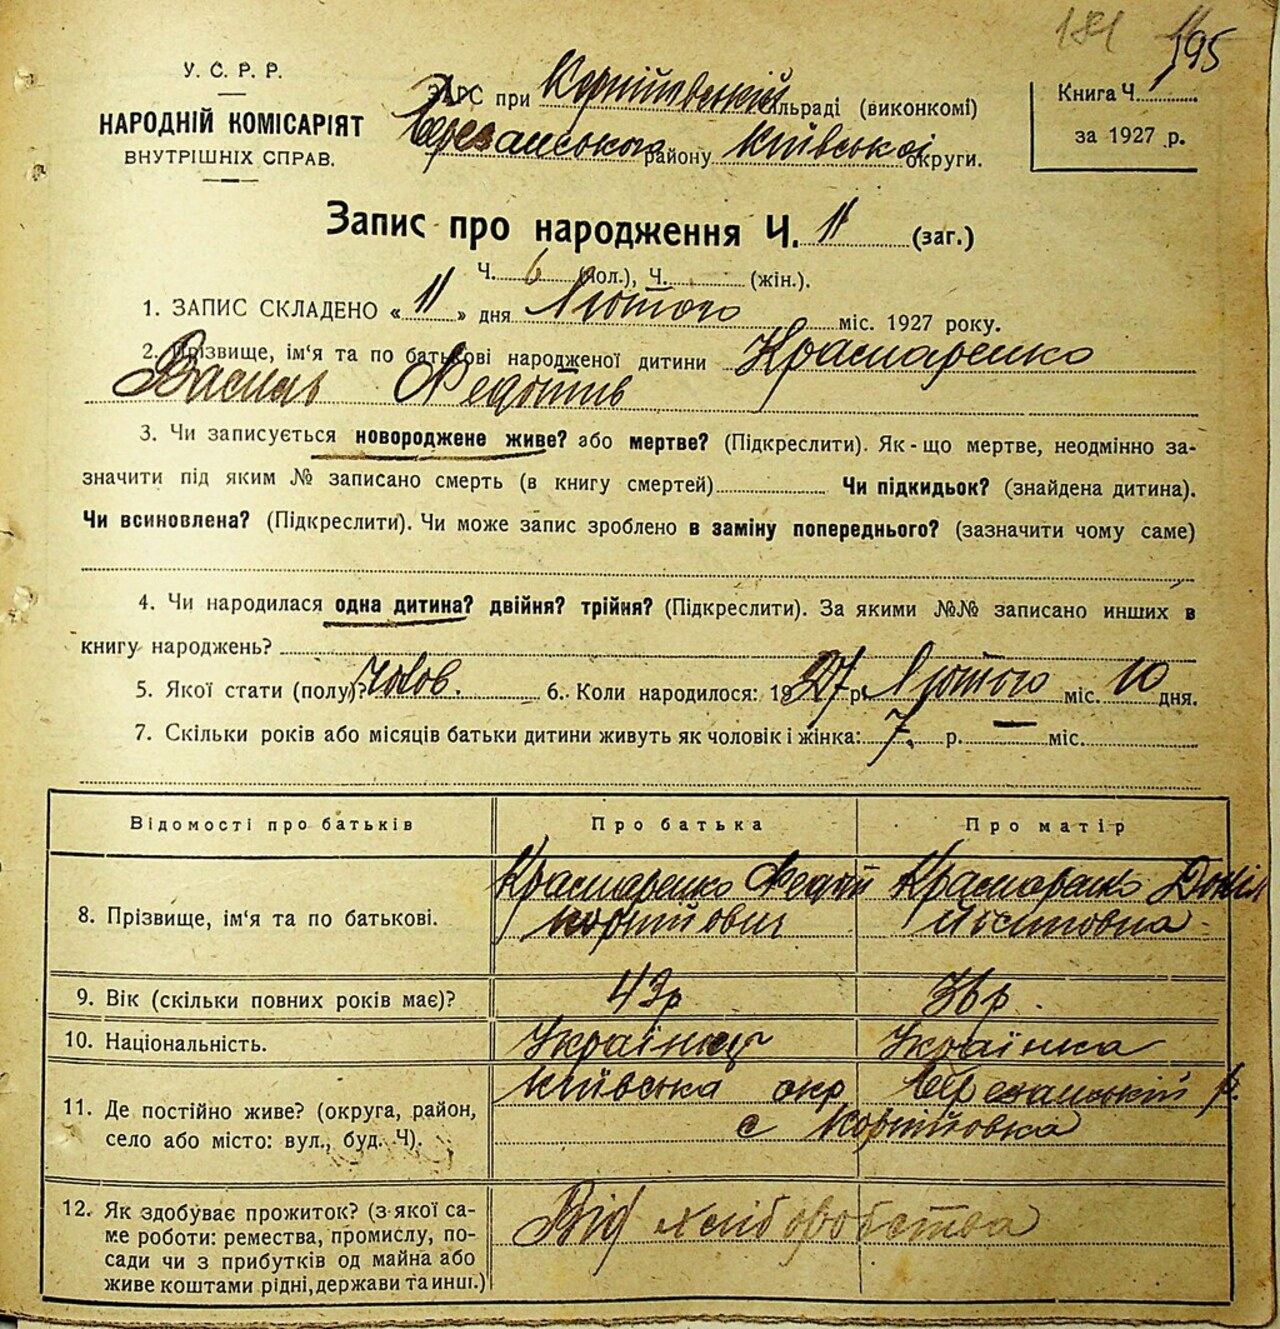 181 195
У. С. Р. Р.
НАРОДНІЙ КОМІСАРІЯТ
ВНУТРІШНІХ СПРАВ.
ЗАГС при Корніївській сільраді (виконкомі)
Березанського району Київської округи.
Книга Ч.
за 1927 р.
Запис про народження Ч. 11 (заг.)
Ч. 6 (чол.), Ч. (жін.).
1. ЗАПИС СКЛАДЕНО « 11 » дня Лютого міс. 1927 року.
2. Прізвище, ім'я та по батькові народженої дитини Крамаренко
Василь Федотів
3. Чи записується новороджене живе? або мертве? (Підкреслити). Як-що мертве, неодмінно за-
значити під яким № записано смерть (в книгу смертей) Чи підкидьок? (знайдена дитина).
Чи всиновлена? (Підкреслити). Чи може запис зроблено в заміну попереднього? (зазначити чому саме)
4. Чи народилася одна дитина? двійня? трійня? (Підкреслити). За якими №№ записано инших в
книгу народжень?
5. Якої стати (полу)? Чолов. 6. Коли народилося: 1927 р. Лютого міс. 10 дня.
7. Скільки років або місяців батьки дитини живуть як чоловік і жінка: 7. р. — міс.
Відомості про батьків Про батька Про матір
8. Прізвище, ім'я та по батькові. Крамаренко Федот Крамаренко
Корнійович
9. Вік (скільки повних років має)? 43р 36р.
10. Національність. Українець Українка
11. Де постійно живе? (округа, район, село або місто: вул., буд. Ч). Київська окр Березанський р.
с Корніївка
12. Як здобуває прожиток? (з якої са-
ме роботи: ремества, промислу, по-
сади чи з прибутків од майна або
живе коштами рідні, держави та инш.) Від хліборобства